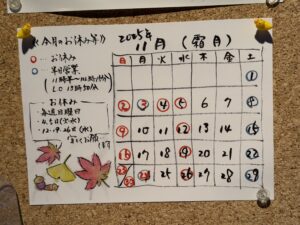 《今月のお休み等》
○…お休み
○…半日営業
11時半〜16時半
LO 15時50分
お休み
・毎週日曜日
・4.5日(火.水)
・12.19.26日(水)
2025年
11月(霜月)
日 月 火 水 木 金 土
1
2 3 4 5 6 7 8
9 10 11 12 13 14 15
16 17 18 19 20 21 22
23/30 24 25 26 27 28 29